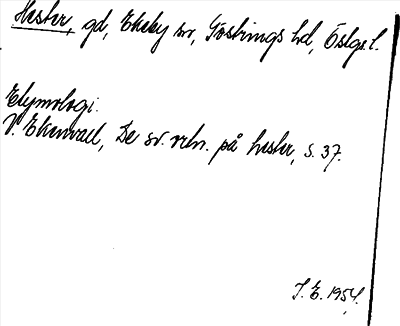 Hester, gd, Ekeby sn, Göstrings hd, Östgs l.
Etymologi:
V. Ekenvall, De sv. orln. på hester, s. 37.
I. E. 1954.